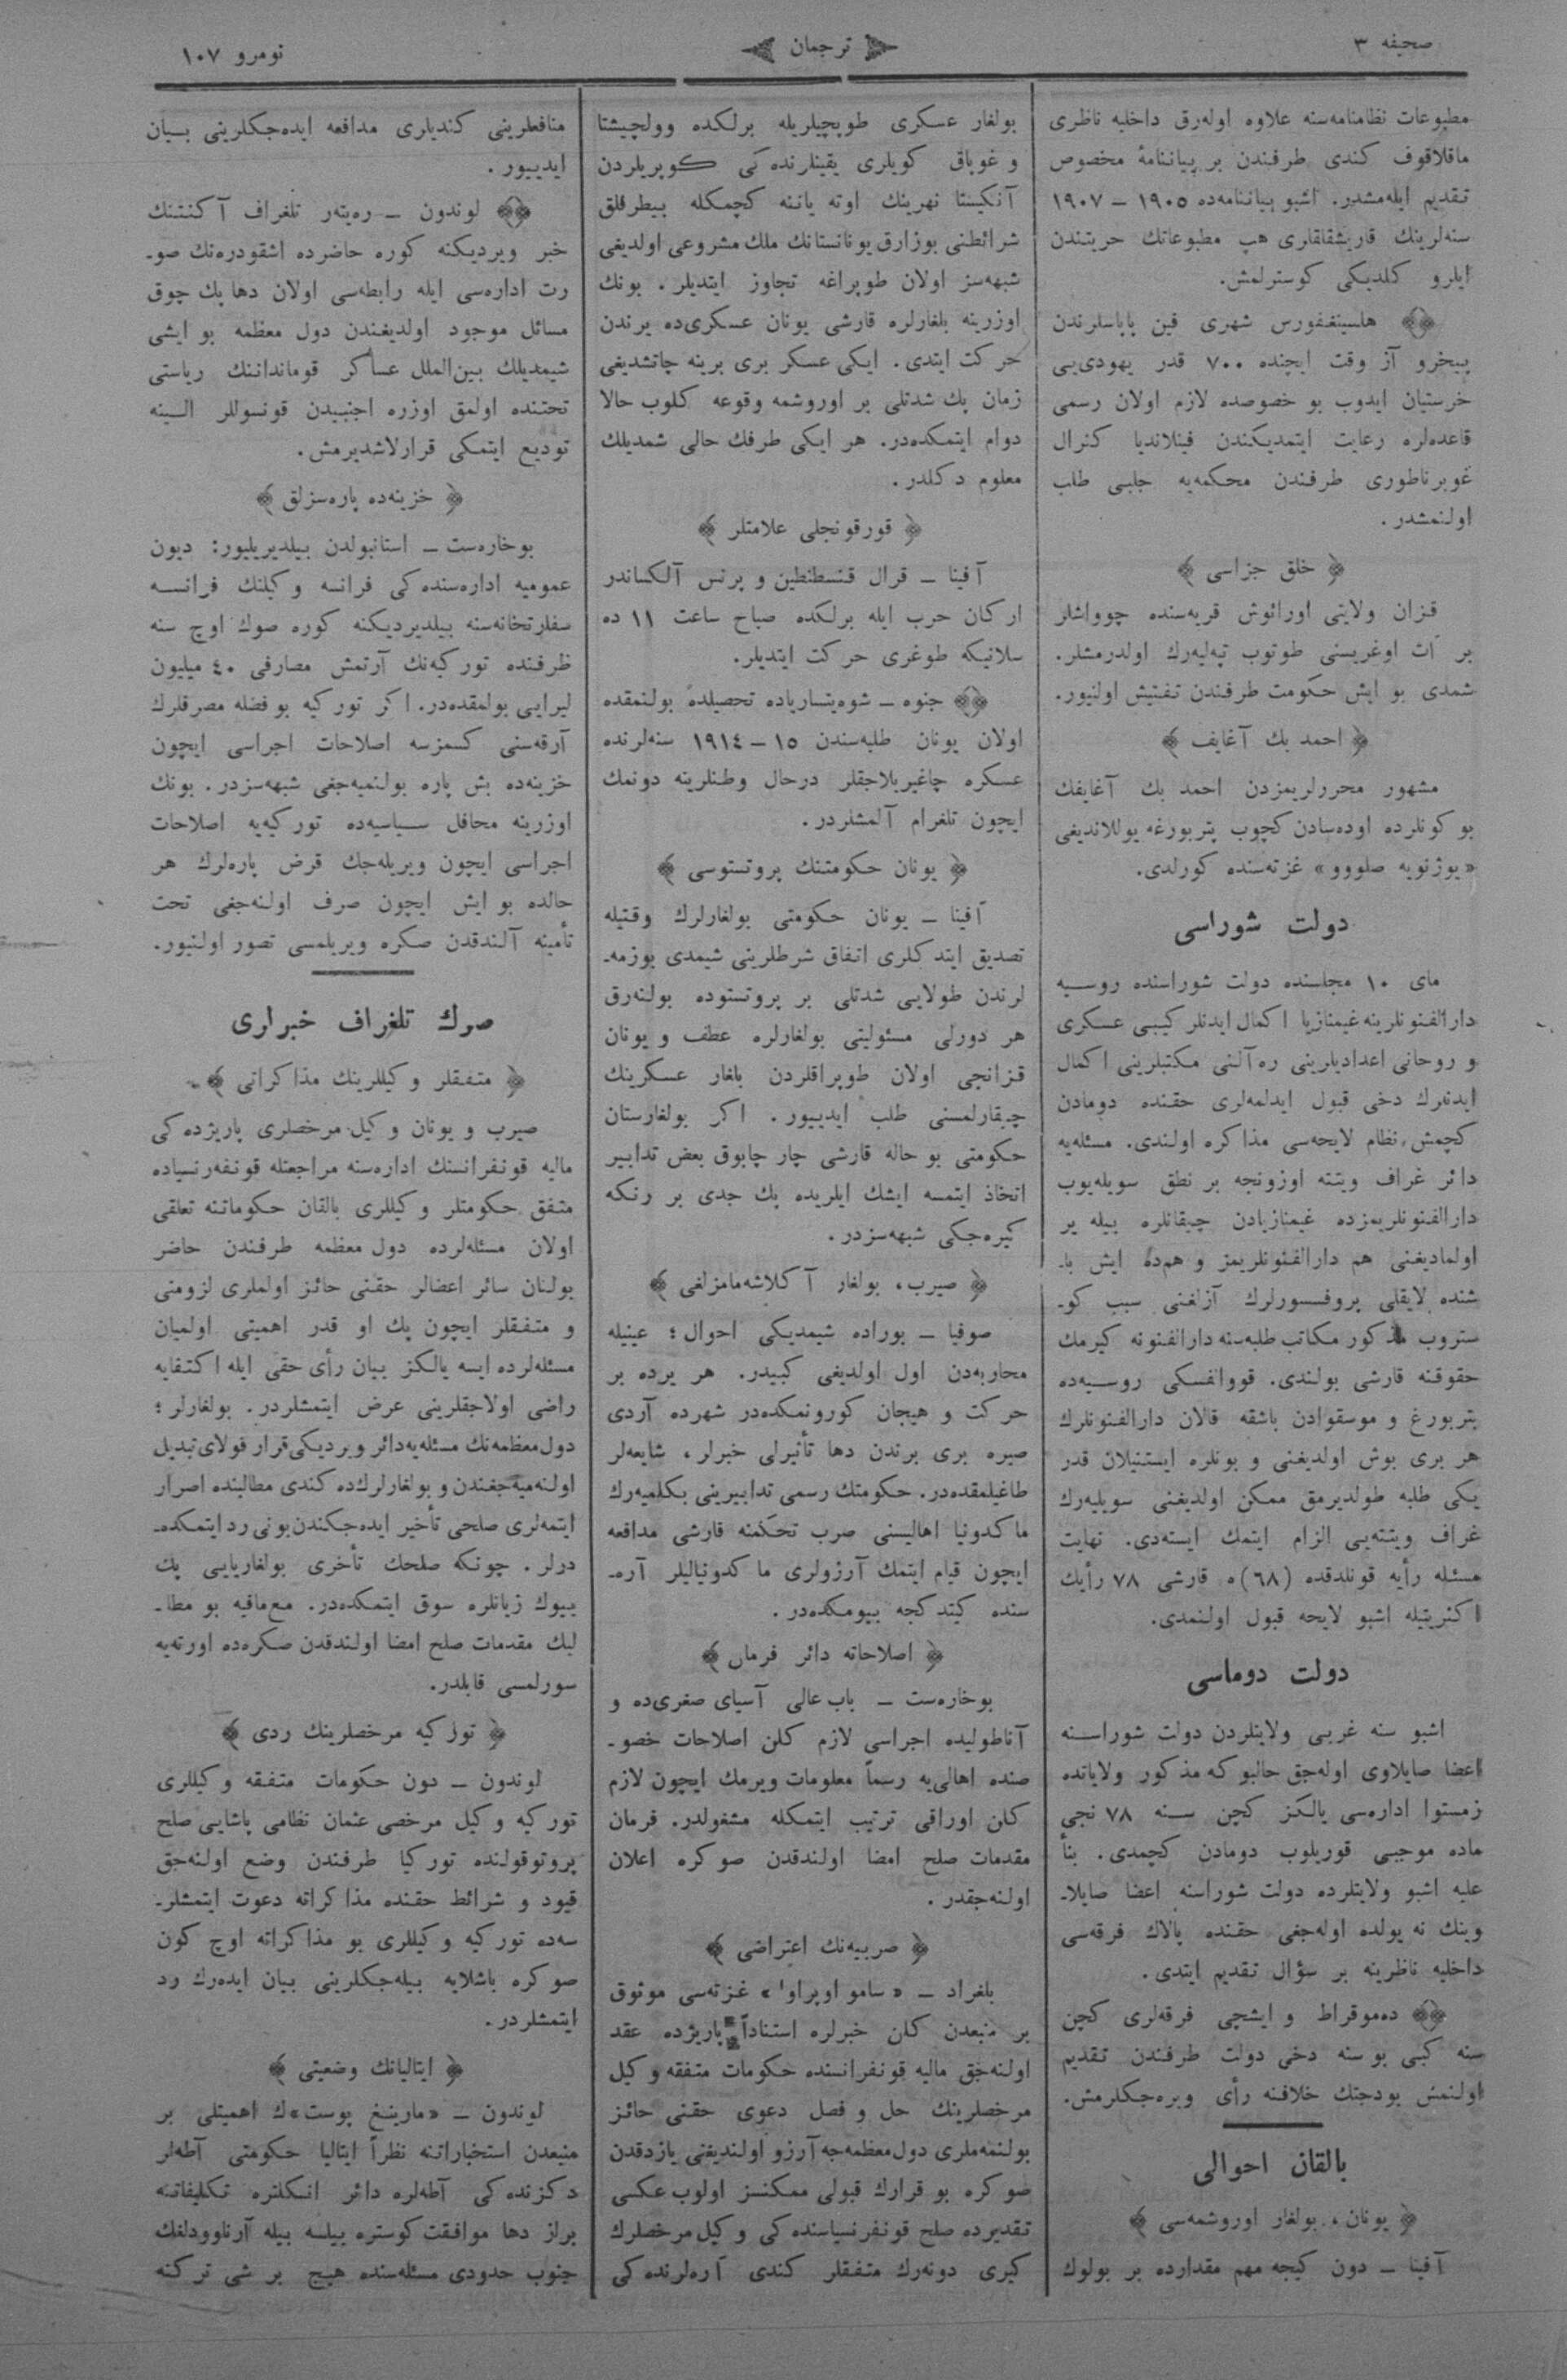 صحيفه ٣
ترجمان
نومرو ١٠٧
مطبوعات نظامنامه‌سنه علاوه اوله‌رق داخليه ناظرى
ماقلاقوف كندى طرفندن بر بياننامۀ مخصوص
تقديم ايله‌مشدر. اشبو بياننامه‌ده ١٩٠٥ ـ ١٩٠٧
سنه‌لرينك قاريشقاقلرى هپ مطبوعاتك حريتندن
ايلرو كلديكى كوسترلمش.
هلسينغفورس شهرى فين پاپاسلرندن
پيخرو آز وقت ايچنده ٧٠٠ قدر يهودى‌يى
خرستيان ايدوب بو خصوصده لازم اولان رسمى
قاعده‌لره رعايت ايتمديكندن فينلانديا كنرال
غوبرناطورى طرفندن محكمه‌يه جلبى طلب
اولنمشدر.
﴿ خلق جزاسى ﴾
قزان ولايتى اورائوش قريه‌سنده چوواشلر
بر آت اوغريسنى طوتوب تپه‌ليه‌رك اولدرمشلر.
شمدى بو ايش حكومت طرفندن تفتيش اولنيور.
﴿ احمد بك آغايف ﴾
مشهور محررلريمزدن احمد بك آغايفك
بو كونلرده اوده‌سادن كچوب پتربورغه يوللانديغى
«يوژنويه صلووو» غزته‌سنده كورلدى.
دولت شوراسى
ماى ١٠ مجلسنده دولت شوراسنده روسيه
دارالفنونلرينه غيمنازيا اكمال ايدنلر كيبى عسكرى
و روحانى اعداديلرينى ره‌آلنى مكتبلرينى اكمال
ايدنلرك دخى قبول ايدلمه‌لرى حقنده دومادن
كچمش نظام لايحه‌سى مذاكره اولندى. مسئله‌يه
دائر غراف ويتته اوزونجه بر نطق سويله‌يوب
دارالفنونلريمزده غيمنازيادن چيقانلره بيله ير
اولماديغنى هم دارالفنونلريمز و هم‌ده ايش با‍ـ
شنده لايقلى پروفسسورلرك آزلغنى سبب كو‍ـ
ستروب مذكور مكاتب طلبه‌سنه دارالفنونه كيرمك
حقوقنه قارشى بولندى. قووالفسكى روسيه‌ده
پتربورغ و موسقوادن باشقه قالان دارالفنونلرك
هر برى بوش اولديغنى و بونلره ايستنيلان قدر
يكى طلبه طولديرمق ممكن اولديغنى سويليه‌رك
غراف ويتته‌يى الزام ايتمك ايسته‌دى. نهايت
مسئله رأيه قونلدقده (٦٨)ه قارشى ٧٨ رأيك
اكثريتيله اشبو لايحه قبول اولنمدى.
دولت دوماسى
اشبو سنه غربى ولايتلردن دولت شوراسنه
اعضا صايلاوى اوله‌جق حالبوكه مذكور ولاياتده
زمستوا اداره‌سى يالكز كچن سنه ٧٨ نجى
ماده موجبى قوريلوب دومادن كچمدى. بنأ
عليه اشبو ولايتلرده دولت شوراسنه اعضا صايلا‍ـ
وينك نه يولده اوله‌جغى حقنده پالاك فرقه‌سى
داخليه ناظرينه بر سؤال تقديم ايتدى.
ده‌موقراط و ايشجى فرقه‌لرى كچن
سنه كبى بو سنه دخى دولت طرفندن تقديم
اولنمش بودجتك خلافنه رأى ويره‌جكلرمش.
بالقان احوالى
﴿ يونان، بولغار اوروشمه‌سى ﴾
آفينا ـ دون كيجه مهم مقدارده بر بولوك
بولغار عسكرى طوپچيلريله برلكده وولچيشتا
و غوياق كويلرى يقينلرنده‌كى كوپريلردن
آنكيستا نهرينك اوته ياننه كچمكله بيطرفلق
شرائطنى بوزارق يونانستانك ملك مشروعى اولديغى
شبهه‌سز اولان طوپراغه تجاوز ايتديلر. بونك
اوزرينه بلغارلره قارشى يونان عسكرى‌ده يرندن
حركت ايتدى. ايكى عسكر برى برينه چاتشديغى
زمان پك شدتلى بر اوروشمه وقوعه كلوب حالا
دوام ايتمكده‌در. هر ايكى طرفك حالى شمديلك
معلوم دكلدر.
﴿ قورقونجلى علامتلر ﴾
آفينا ـ قرال قنسطنطين و پرنس آلكساندر
اركان حرب ايله برلكده صباح ساعت ١١ ده
سلانيكه طوغرى حركت ايتديلر.
جنوه ـ شوه‌يتسارياده تحصيلده بولنمقده
اولان يونان طلبه‌سندن ١٥ ـ ١٩١٤ سنه‌لرنده
عسكره چاغيريلاجقلر درحال وطنلرينه دونمك
ايچون تلغرام آلمشلردر.
﴿ يونان حكومتنك پروتستوسى ﴾
آفينا ـ يونان حكومتى بولغارلرك وقتيله
تصديق ايتدكلرى اتفاق شرطلرينى شيمدى بوزمه‍ـ
لرندن طولايى شدتلى بر پروتستوده بولنه‌رق
هر دورلى مسئوليتى بولغارلره عطف و يونان
قزانجى اولان طوپراقلردن بلغار عسكرينك
چيقارلمسنى طلب ايدييور. اكر بولغارستان
حكومتى بو حاله قارشى چار چابوق بعض تدابير
اتخاذ ايتمسه ايشك ايلريده پك جدى بر رنكه
كيره‌جكى شبهه‌سزدر.
﴿ صيرب، بولغار آكلاشه‌مامزلغى ﴾
صوفيا ـ بوراده شيمديكى احوال؛ عينيله
محاربه‌دن اول اولديغى كبيدر. هر يرده بر
حركت و هيجان كورونمكده‌در شهرده آردى
صيره برى برندن دها تأثيرلى خبرلر، شايعه‌لر
طاغيلمقده‌در. حكومتك رسمى تدابيرينى بكلميه‌رك
ماكدونيا اهاليسنى صرب تحكمنه قارشى مدافعه
ايچون قيام ايتمك آرزولرى ماكدونياليلر آره‍ـ
سنده كيتدكجه بيومكده‌در.
﴿ اصلاحاته دائر فرمان ﴾
بوخاره‌ست ـ باب عالى آسياى صغرى‌ده و
آناطوليده اجراسى لازم كلن اصلاحات خصو‍ـ
صنده اهالى‌يه رسماً معلومات ويرمك ايچون لازم
كلن اوراقى ترتيب ايتمكله مشغولدر. فرمان
مقدمات صلح امضا اولندقدن صوكره اعلان
اولنه‌جقدر.
﴿ صربيه‌نك اعتراضى ﴾
بلغراد ـ «سامو اوپراوا» غزته‌سى موثوق
بر منبعدن كلن خبرلره استناداً پاريژده عقد
اولنه‌جق ماليه قونفرانسنده حكومات متفقه وكيل
مرخصلرينك حل و فصل دعوى حقنى حائز
بولنمه‌ملرى دول معظمه‌جه آرزو اولنديغنى يازدقدن
صوكره بو قرارك قبولى ممكنسز اولوب عكسى
تقديرده صلح قونفرنسياسنده‌كى وكيل مرخصلرك
كيرى دونه‌رك متفقلر كندى آره‌لرنده‌كى
منافعلرينى كنديلرى مدافعه ايده‌جكلرينى بيان
ايدييور.
لوندون ـ ره‌يته‌ر تلغراف آكنتنك
خبر ويرديكنه كوره حاضرده اشقودره‌نك صو‍ـ
رت اداره‌سى ايله رابطه‌سى اولان دها پك چوق
مسائل موجود اولديغندن دول معظمه بو ايشى
شيمديلك بين‌الملل عساكر قومانداننك رياستى
تحتنده اولمق اوزره اجنبيدن قونسوللر الينه
توديع ايتمكى قرارلاشديرمش.
﴿ خزينه‌ده پاره‌سزلق ﴾
بوخاره‌ست ـ استانبولدن بيلديريليور: ديون
عموميه اداره‌سنده‌كى فرانسه وكيلنك فرانسه
سفارتخانه‌سنه بيلديرديكنه كوره صوك اوچ سنه
ظرفنده توركيه‌نك آرتمش مصارفى ٤٠ ميليون
ليرايى بولمقده‌در. اكر توركيه بو فضله مصرفلرك
آرقه‌سنى كسمزسه اصلاحات اجراسى ايچون
خزينه‌ده بش پاره بولنميه‌جغى شبهه‌سزدر. بونك
اوزرينه محافل سياسيه‌ده توركيه‌يه اصلاحات
اجراسى ايچون ويريله‌جك قرض پاره‌لرك هر
حالده بو ايش ايچون صرف اولنه‌جغى تحت
تأمينه آلندقدن صكره ويريلمسى تصور اولنيور.
صوك تلغراف خبرلرى
﴿ متفقلر وكيللرينك مذاكراتى ﴾
صيرب و يونان وكيل مرخصلرى پاريژده‌كى
ماليه قونفرانسنك اداره‌سنه مراجعتله قونفه‌رنسياده
متفق حكومتلر وكيللرى بالقان حكوماتنه تعلقى
اولان مسئله‌لرده دول معظمه طرفندن حاضر
بولنان سائر اعضالر حقنى حائز اولملرى لزومنى
و متفقلر ايچون پك او قدر اهميتى اولميان
مسئله‌لرده ايسه يالكز بيان رأى حقى ايله اكتفايه
راضى اولاجقلرينى عرض ايتمشلردر. بولغارلر؛
دول معظمه‌نك مسئله‌يه دائر ويرديكى قرار قولاى تبديل
اولنه‌ميه‌جغندن و بولغارلرك‌ده كندى مطالبنده اصرار
ايتمه‌لرى صلحى تأخير ايده‌جكندن بونى رد ايتمكده‍ـ
درلر. چونكه صلحك تأخرى بولغاريايى پك
بيوك زيانلره سوق ايتمكده‌در. مع‌مافيه بو مطا‍ـ
لبك مقدمات صلح امضا اولندقدن صكره‌ده اورته‌يه
سورلمسى قابلدر.
﴿ توركيه مرخصلرينك ردى ﴾
لوندون ـ دون حكومات متفقه وكيللرى
توركيه وكيل مرخصى عثمان نظامى پاشايى صلح
پروتوقولنده توركيا طرفندن وضع اولنه‌جق
قيود و شرائط حقنده مذاكراته دعوت ايتمشلر‍ـ
سه‌ده توركيه وكيللرى بو مذاكراته اوچ كون
صوكره باشلايه بيله‌جكلرينى بيان ايده‌رك رد
ايتمشلردر.
﴿ ايتاليانك وضعيتى ﴾
لوندون ـ «مارنينغ پوست»ك اهميتلى بر
منبعدن استخباراتنه نظراً ايتاليا حكومتى آطه‌لر
دكزنده‌كى آطه‌لره دائر انكلتره تكليفاتنه
برلز دها موافقت كوستره بيلسه بيله آرناوودلغك
جنوب حدودى مسئله‌سنده هيچ بر شى تركنه